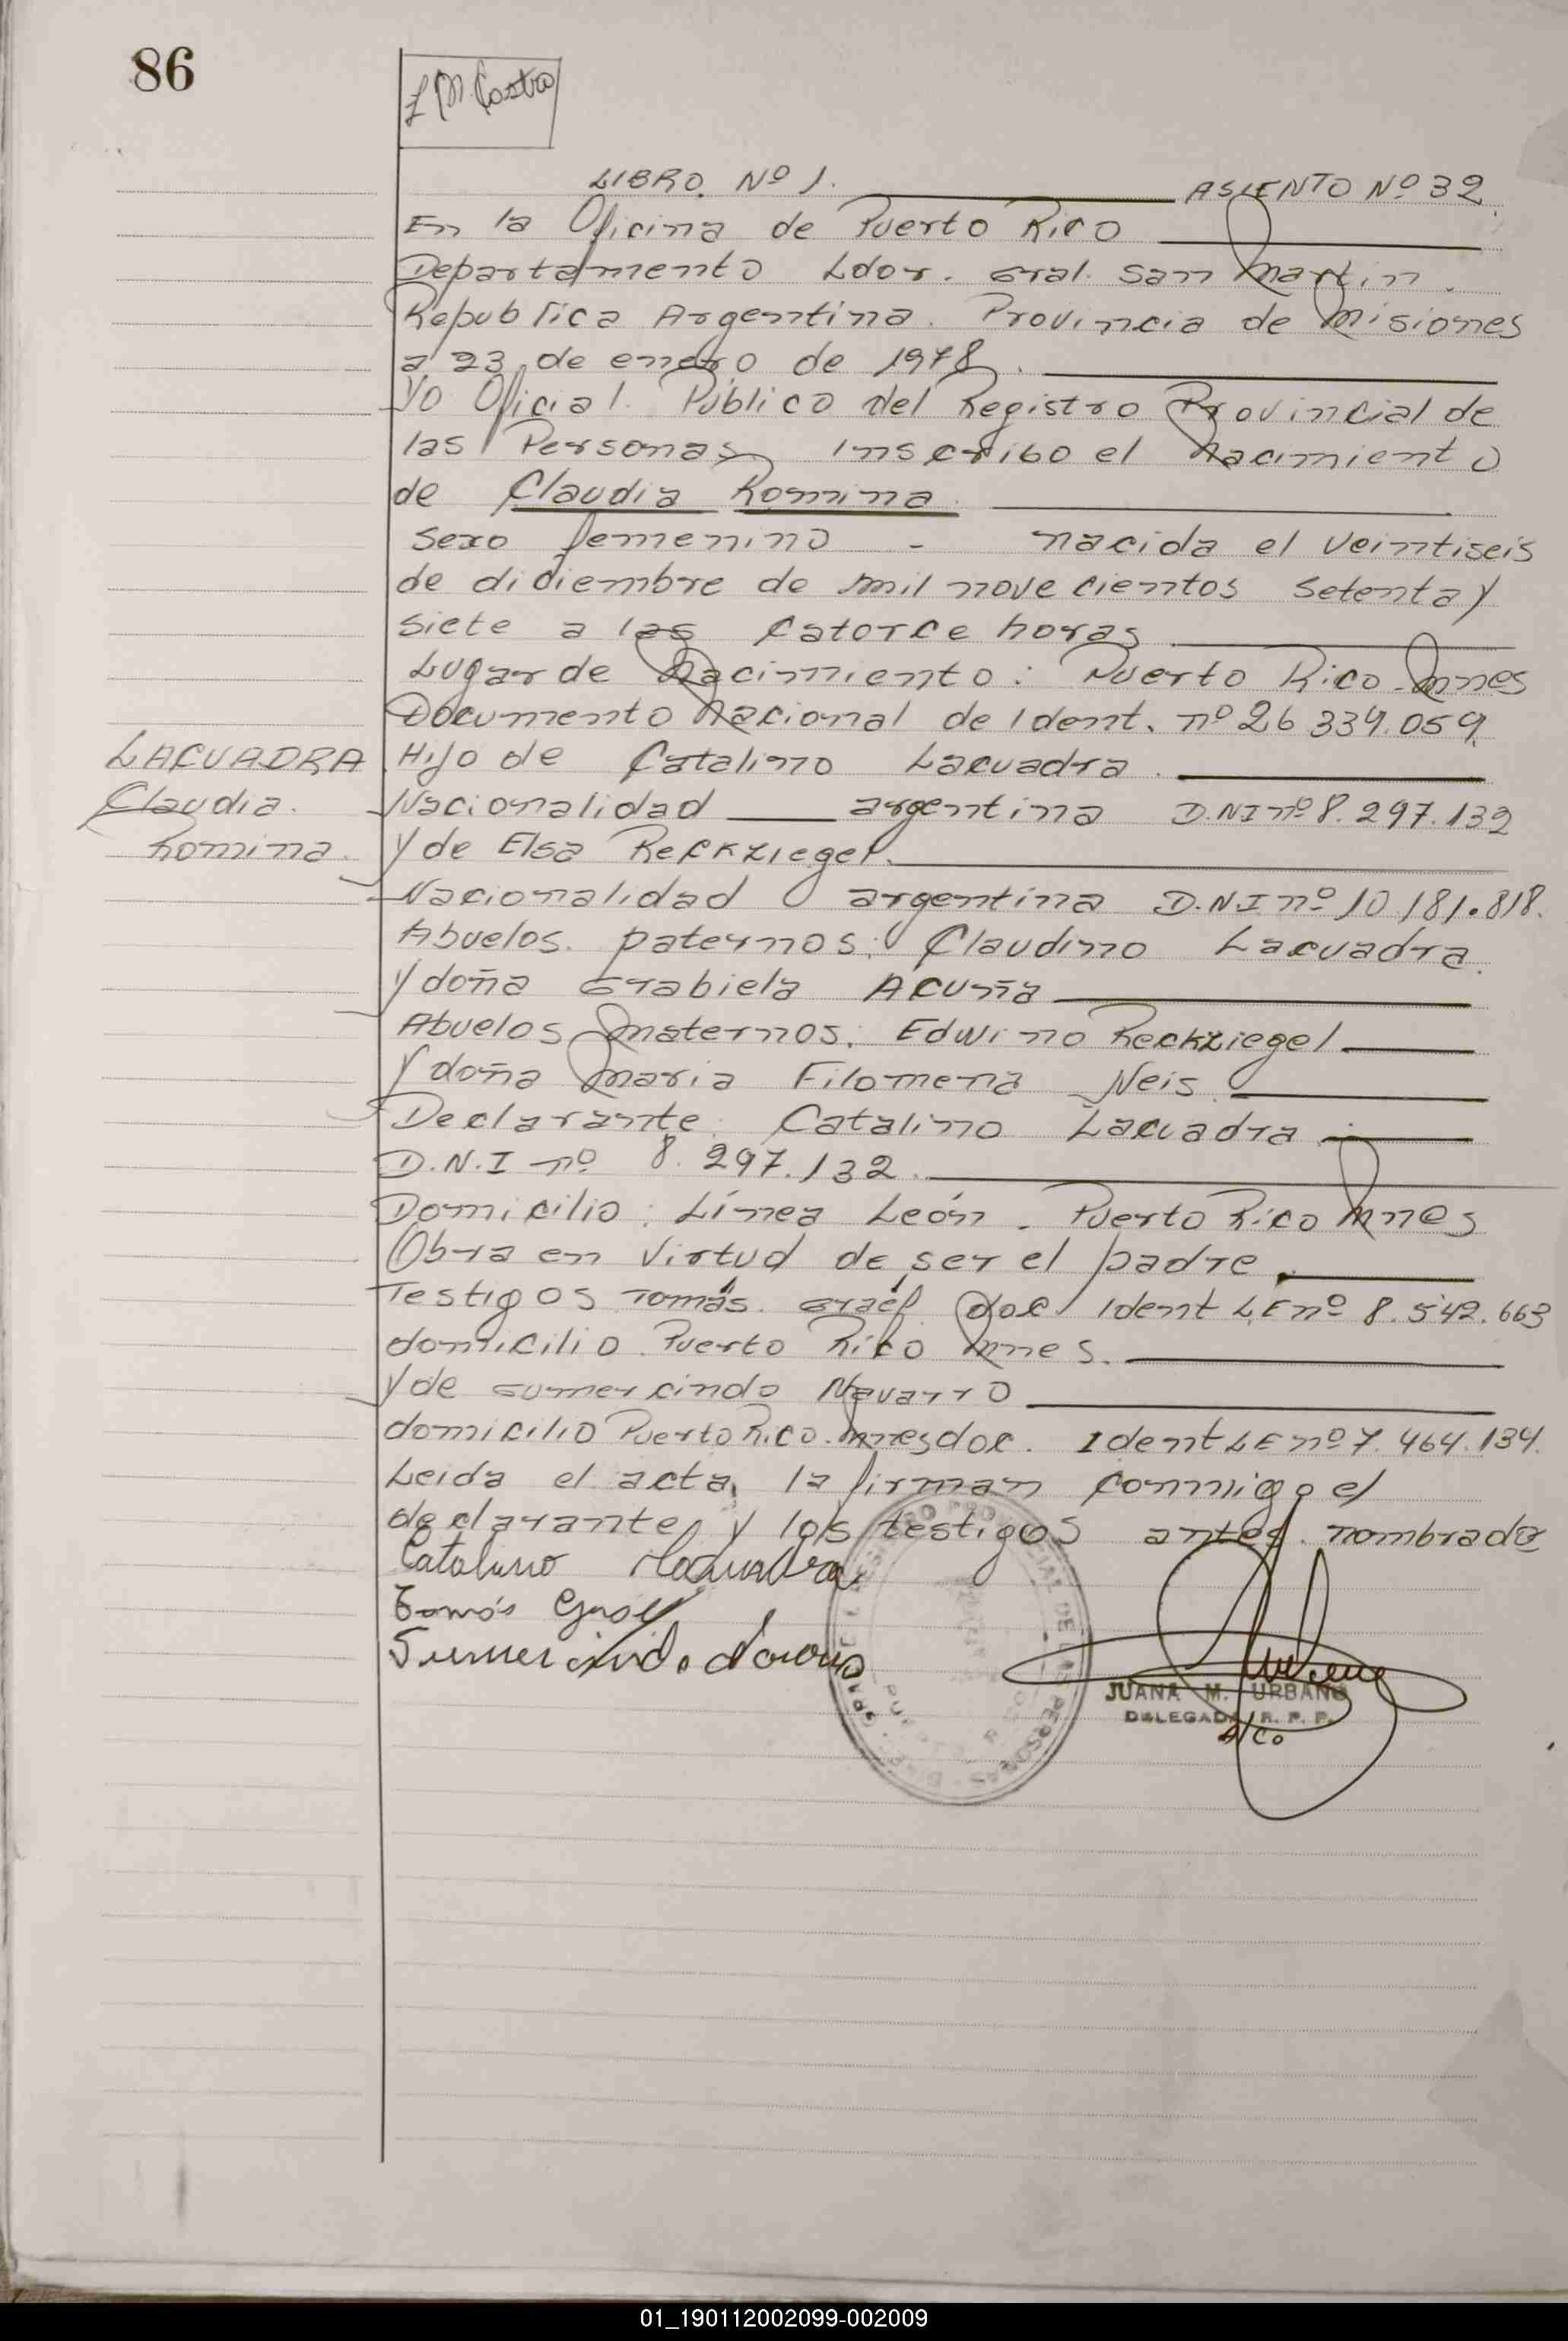 86
L M Castro
LIBRO. Nº 1. ASIENTO Nº 32
En la Oficina de Puerto Rico
Departamento Ldor. Gral. San Martin.
Republica Argentina. Provincia de Misiones
a 23 de enero de 1978.
Yo Oficial. Público del Registro Provincial de
las Personas, Inscribo el Nacimiento
de Claudia Romina
sexo femenino - nacida el veintiseis
de didiembre de mil novecientos setenta y
siete a las catorce horas
Lugar de Nacimiento: Puerto Rico. Mnes
Documento Nacional de Ident. nº 26 334.059.
LACUADRA Hijo de Catalino Lacuadra.
Claudia. Nacionalidad argentina D.NI nº 8.297.132
Romina. y de Elsa Reckziegel.
Nacionalidad argentina D.N.I nº 10.181.818.
Abuelos. paternos: Claudino Lacuadra.
y doña Grabiela Acuña
Abuelos Maternos: Edwino Reckziegel
y doña Maria Filomena Neis.
Declarante: Catalino Lacuadra.
D.N.I nº 8.297.132.
Domicilio: Línea León. Puerto Rico Mnes
Obra en virtud de ser el padre.
Testigos Tomás. Graef. doc Ident L.E nº 8.542.663
domicilio. Puerto Rico Mnes.
y de Gumercindo Navarro
domicilio Puerto Rico. Mnes doc. Ident LE nº 7.464.134.
Leida el acta, la firman conmigo el
declarante, y los testigos antes. nombrado
Catalino Lacuadra
Tomás Graef
REGISTRO PROVINCIAL DE LAS PERSONAS
JUANA M. URBANO
DELEGADA R. P. P.
01_190112002099-002009